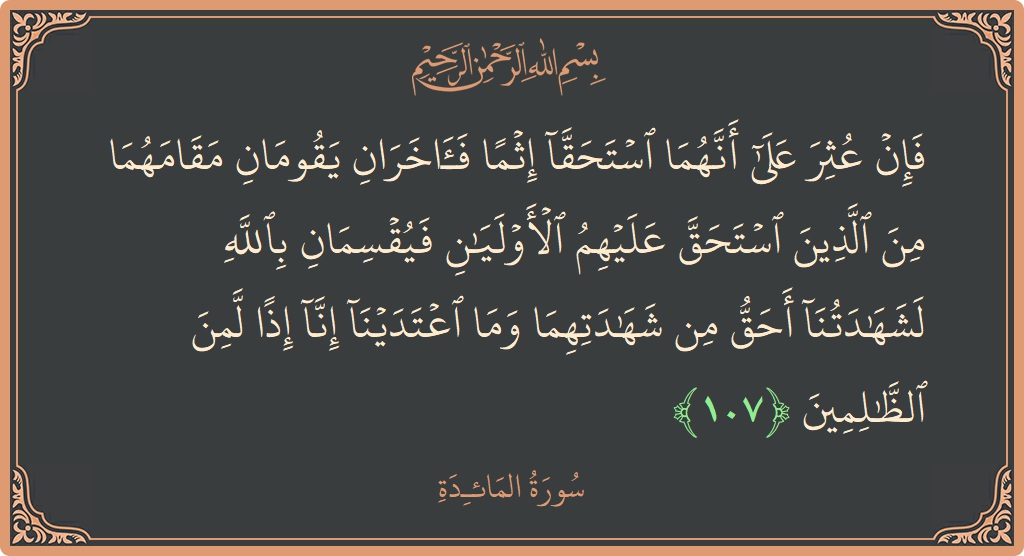 بِسْمِ اللَّهِ الرَّحْمَٰنِ الرَّحِيمِ
فَإِنْ عُثِرَ عَلَىٰٓ أَنَّهُمَا ٱسْتَحَقَّآ إِثْمًا فَـَٔاخَرَانِ يَقُومَانِ مَقَامَهُمَا
مِنَ ٱلَّذِينَ ٱسْتَحَقَّ عَلَيْهِمُ ٱلْأَوْلَيَـٰنِ فَيُقْسِمَانِ بِٱللَّهِ
لَشَهَـٰدَتُنَآ أَحَقُّ مِن شَهَـٰدَتِهِمَا وَمَا ٱعْتَدَيْنَآ إِنَّآ إِذًا لَّمِنَ
ٱلظَّـٰلِمِينَ ﴿١٠٧﴾
سُورَةُ المَائـِدَةِ